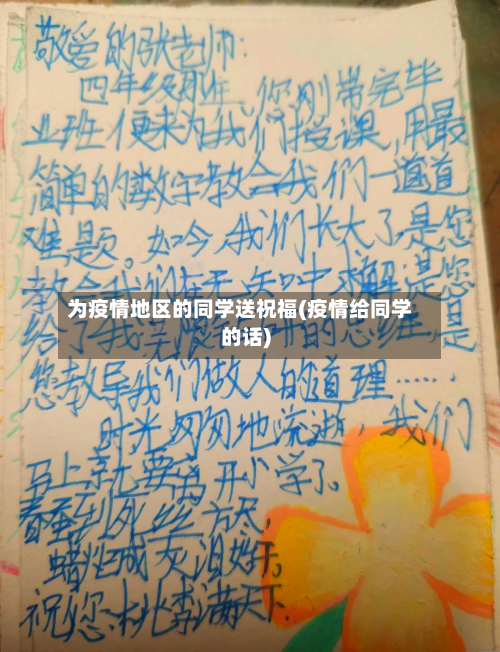 敬爱的张老师:
四年级那年,您刚带完毕
业班便来为我们授课,用最
简单的数字教会我们一道道
难题。如今,我们长大了,是您
教会我们在无知中求解,是您
为疫情地区的同学送祝福(疫情给同学
的话)
给了我
的思维,是
您教导我们做人的道理……,
时光匆匆地流逝,我们
马上就要离开小学了。
春蚕到死丝方尽,
蜡炬成灰泪始干。
祝您:桃李满天下.